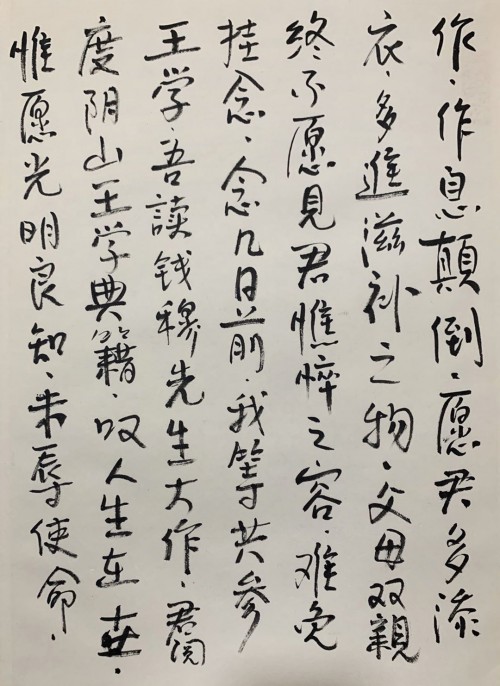 作、作息颠倒、愿君多添
衣、多進滋补之物、父母双親
终不愿見君憔悴之容、难免
挂念、念几日前、我等共参
王学、吾读钱穆先生大作、君阅
度阴山王学典籍、叹人生在世、
惟愿光明良知、未辱使命、